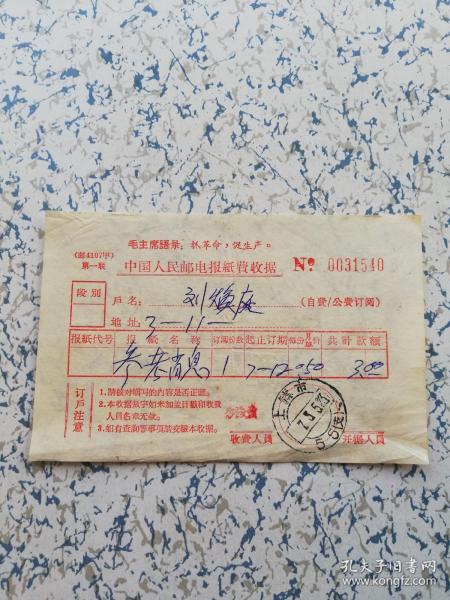 毛主席語录:抓革命,促生产。
(邮4107甲)
第一联
中国人民邮电报紙費收据
№ 0031540
段別
戶名:刘焕庭
(自費/公費订阅)
地址:3-11-
报紙代号 报紙名称 订閱份数 起止订期 每份月季价 共計款額
参考消息 1 7-12 050 3.00
订戶注意
1.請核对填写的内容是否正确。
2.本收据数字如未加盖日戳和收費
人員名章无效。
3.如有查詢等事項請交驗本收据。
收費人員
开据人員
上海市
孔夫子旧书网
www.kongfz.com